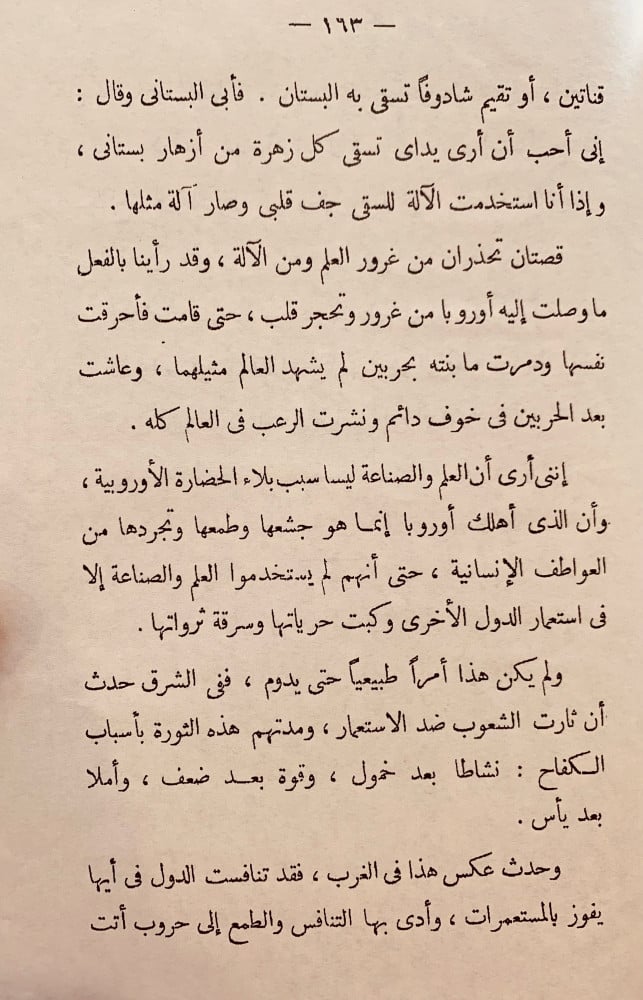 — ١٦٣ —
قناتين ، أو تقيم شادوفاً تسقى به البستان . فأبى البستانى وقال :
إنى أحب أن أرى يداى تسقى كل زهرة من أزهار بستانى ،
وإذا أنا استخدمت الآلة للسقى جف قلبى وصار آلة مثلها .
قصتان تحذران من غرور العلم ومن الآلة ، وقد رأينا بالفعل
ما وصلت إليه أوروبا من غرور وتحجر قلب ، حتى قامت فأحرقت
نفسها ودمرت ما بنته بحربين لم يشهد العالم مثيلهما ، وعاشت
بعد الحربين فى خوف دائم ونشرت الرعب فى العالم كله .
إننى أرى أن العلم والصناعة ليسا سبب بلاء الحضارة الأوروبية ،
وأن الذى أهلك أوروبا إنما هو جشعها وطمعها وتجردها من
العواطف الإنسانية ، حتى أنهم لم يستخدموا العلم والصناعة إلا
فى استعمار الدول الأخرى وكبت حرياتها وسرقة ثرواتها .
ولم يكن هذا أمراً طبيعياً حتى يدوم ، ففى الشرق حدث
أن ثارت الشعوب ضد الاستعمار ، ومدتهم هذه الثورة بأسباب
الكفاح : نشاطا بعد خمول ، وقوة بعد ضعف ، وأملا
بعد يأس .
وحدث عكس هذا فى الغرب ، فقد تنافست الدول فى أيها
يفوز بالمستعمرات ، وأدى بها التنافس والطمع إلى حروب أتت